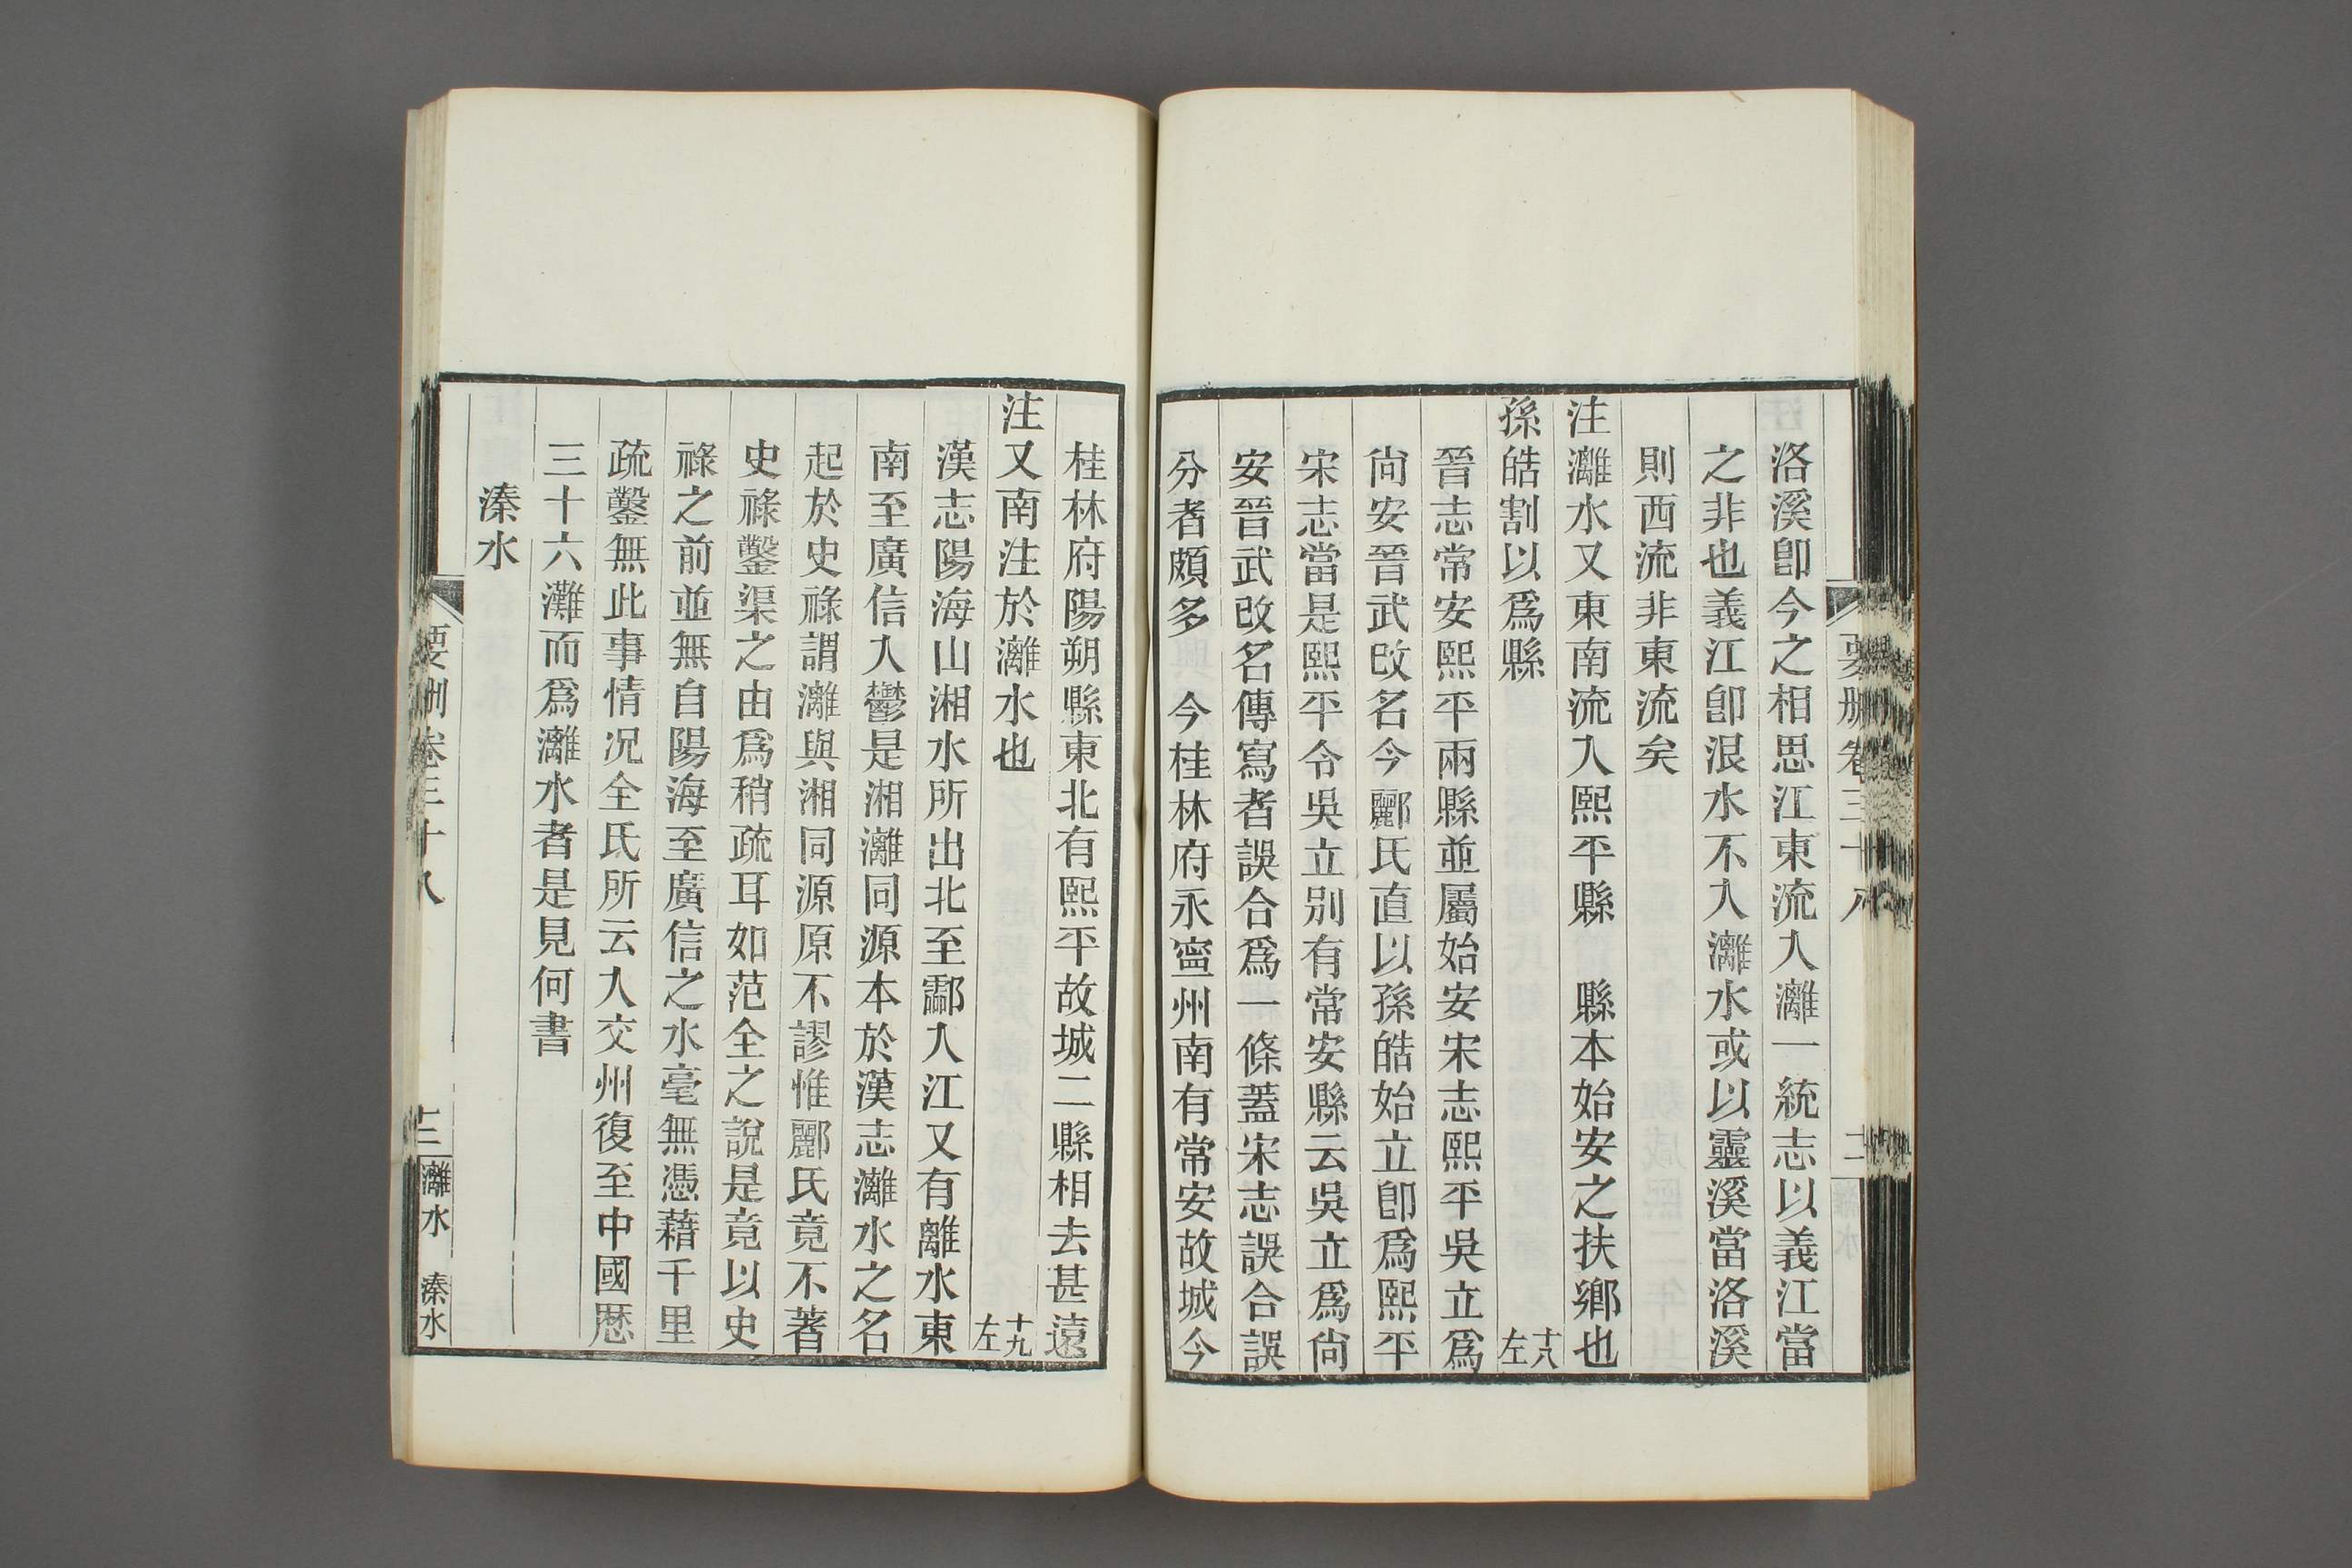 洛溪卽今之相思江東流入灕一統志以義江當
之非也義江卽浪水不入灕水或以靈溪當洛溪
則西流非東流矣
注灕水又東南流入熙平縣 縣本始安之扶鄉也
孫皓割以爲縣 十八左
晉志常安熙平兩縣並屬始安宋志熙平吳立爲
尙安晉武改名今酈氏直以孫皓始立卽爲熙平
宋志當是熙平令吳立別有常安縣云吳立爲尙
安晉武改名傳寫者誤合爲一條蓋宋志誤合誤
分者頗多 今桂林府永寧州南有常安故城今
桂林府陽朔縣東北有熙平故城二縣相去甚遠
注又南注於灕水也 十九左
漢志陽海山湘水所出北至酃入江又有離水東
南至廣信入鬱是湘灕同源本於漢志灕水之名
起於史祿謂灕與湘同源原不謬惟酈氏竟不著
史祿鑿渠之由爲稍疏耳如范全之說是竟以史
祿之前並無自陽海至廣信之水毫無憑藉千里
疏鑿無此事情况全氏所云入交州復至中國歷
三十六灘而爲灕水者是見何書
溱水
要刪卷三十八
灕水 溱水